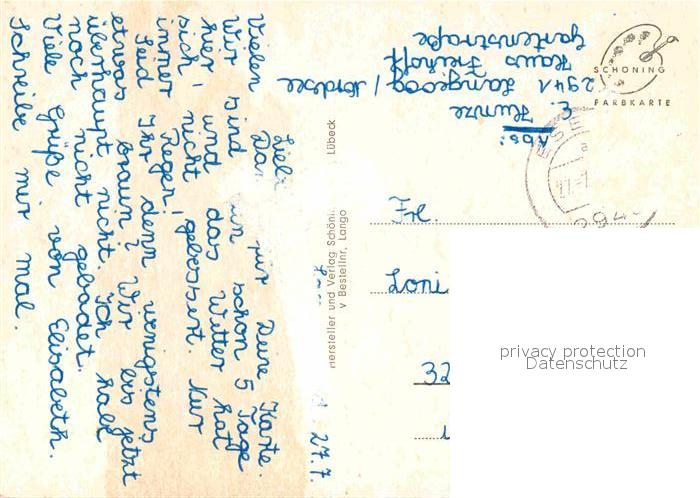 27.7.
Vielen für Deine Karte.
Wir sind schon 5 Tage
hier, und das Wetter hat
sich nicht gebessert. Nur
immer Regen!
Seid Ihr denn wenigstens
etwas braun? Wir bis jetzt
überhaupt nicht. Ich habe
noch nicht gebadet.
Viele Grüße von Elisabeth.
Schreibe mir mal.
Abs:
E. Kunze
2941 Langeoog / Nordsee
Haus Freiholt
Gartenstraße
SCHÖNING
FARBKARTE
Lübeck
Hersteller und Verlag Schöni
Bestellnr. Lango
Frl.
Loni
32
privacy protection
Datenschutz